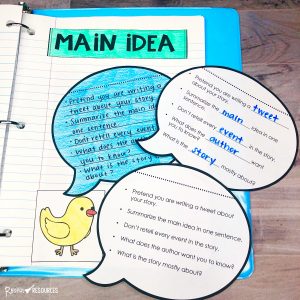 MAIN IDEA
• Pretend you are writing a
tweet about your story.
• Summarize the main idea in
one sentence.
• Don't retell every event
• What does the author
you to know?
• What is the story
about?
• Pretend you are writing a tweet
about your story.
• Summarize the main idea in one
sentence.
• Don't retell every event in the story.
• What does the author want
you to know?
• What is the story mostly about?
• Pretend you are writing a tweet about
your story.
• Summarize the main idea in one sentence.
• Don't retell every event in the story.
• What does the author want you to know?
• What is the story mostly about?
RESOURCES